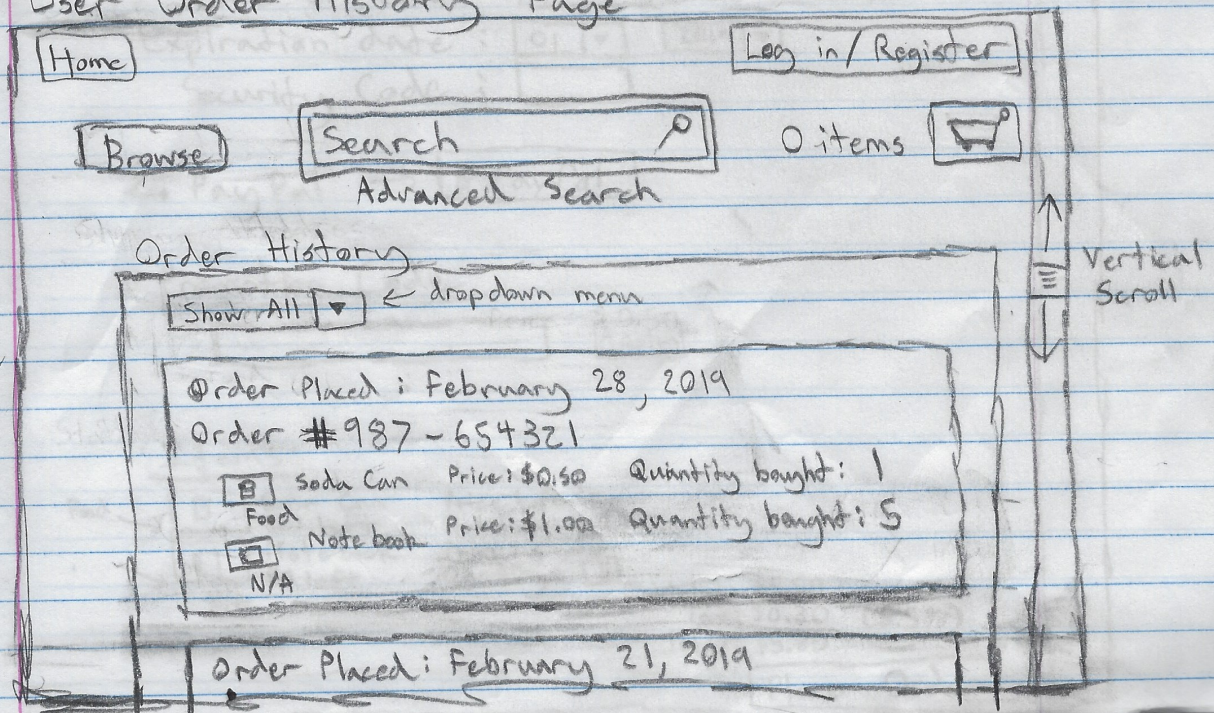 User Order History Page
Home
Log in/Register
Browse
Search
0 items
Advanced Search
Order History
Show All
← dropdown menu
Vertical
Scroll
Order Placed: February 28, 2019
Order #987-654321
Soda Can Price: $0.50 Quantity bought: 1
Food
Notebook Price: $1.00 Quantity bought: 5
N/A
Order Placed: February 21, 2019
Expiration date:
Security Code:
PayPal